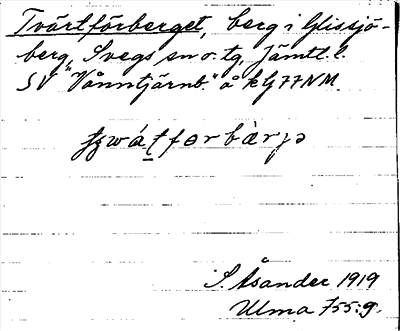 Tvärtförberget, berg i Glissjö-
berg, Svegs sn o. tg, Jämtl. l.
SV "Vånntjärnb." å k G77NM.
S. Åsander 1919
Ulma 755:9.